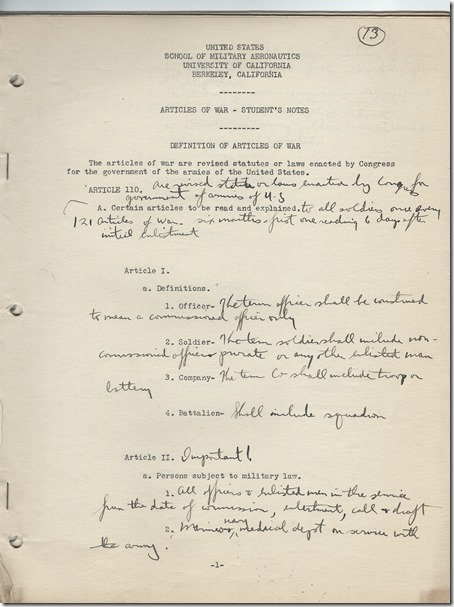 13
UNITED STATES
SCHOOL OF MILITARY AERONAUTICS
UNIVERSITY OF CALIFORNIA
BERKELEY, CALIFORNIA
--------
ARTICLES OF WAR - STUDENT'S NOTES
---------
DEFINITION OF ARTICLES OF WAR
The articles of war are revised statutes or laws enacted by Congress
for the government of the armies of the United States.
ARTICLE 110. are revised statutes or laws enacted by Congress for
government of armies of U.S
A. Certain articles to be read and explained. to all soldiers once every
121 Articles of war. six months & first one reading 6 days after
initial enlistment
Article I.
a. Definitions.
1. Officer- The term officer shall be construed
to mean a commissioned officer only
2. Soldier- The term soldier shall include non-
commissioned officers private or any other enlisted man
3. Company- The term Co shall include troop or
battery
4. Battalion- Shall include squadron
Article II. Important!
a. Persons subject to military law.
1. All officers & enlisted men in the service
from the date of commission, enlistment, call & draft
2. Marines, navy medical dept on service with
the army.
-1-